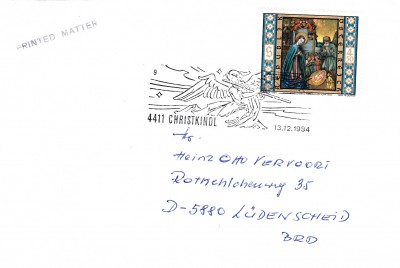 PRINTED MATTER
S 4.50
9
4411 CHRISTKINDL
13.12.1984
Hr.
Heinz Otto VERVOORT
Rathehlohenweg 35
D-5880 LÜDENSCHEID
BRD